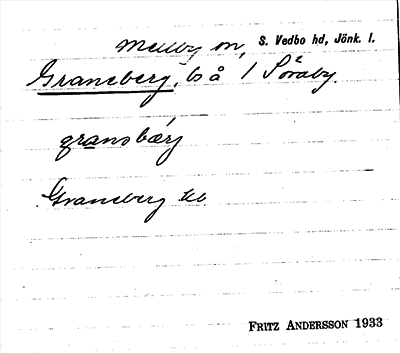 Mellby sn, S. Vedbo hd, Jönk. l.
Gransberg, ls å 1 Söraby.
gransbærj
Gransberg
FRITZ ANDERSSON 1933